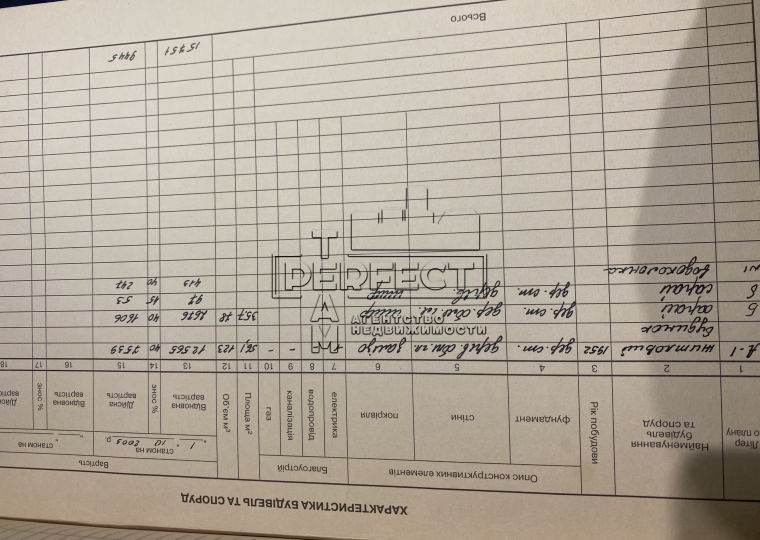 ХАРАКТЕРИСТИКА БУДІВЕЛЬ ТА СПОРУД
Літер по плану
Найменування будівель та споруд
Рік побудови
Опис конструктивних елементів
фундамент
стіни
покрівля
Благоустрій
електрика
водопровід
каналізація
газ
Площа м²
Об'єм м³
Вартість
станом на
1 10 2003 р.
Відновна вартість
знос %
Дійсна вартість
станом на
Відновна вартість
знос %
Дійсна
1 2 3 4 5 6 7 8 9 10 11 12 13 14 15 16 17 18
А-1 житловий 1952 дер. ст. дерев. обл. гл. - - 56,1 123 12565 40 7539
будинок
Б сарай дер. ст. шифер 35,7 78 40 1606
сарай дер. ст. шифер 97 45 53
N1 водоколонка 415 40 247
Всього 15751 9445
TEAM
PERFECT
АГЕНТСТВО
НЕДВИЖИМОСТИ